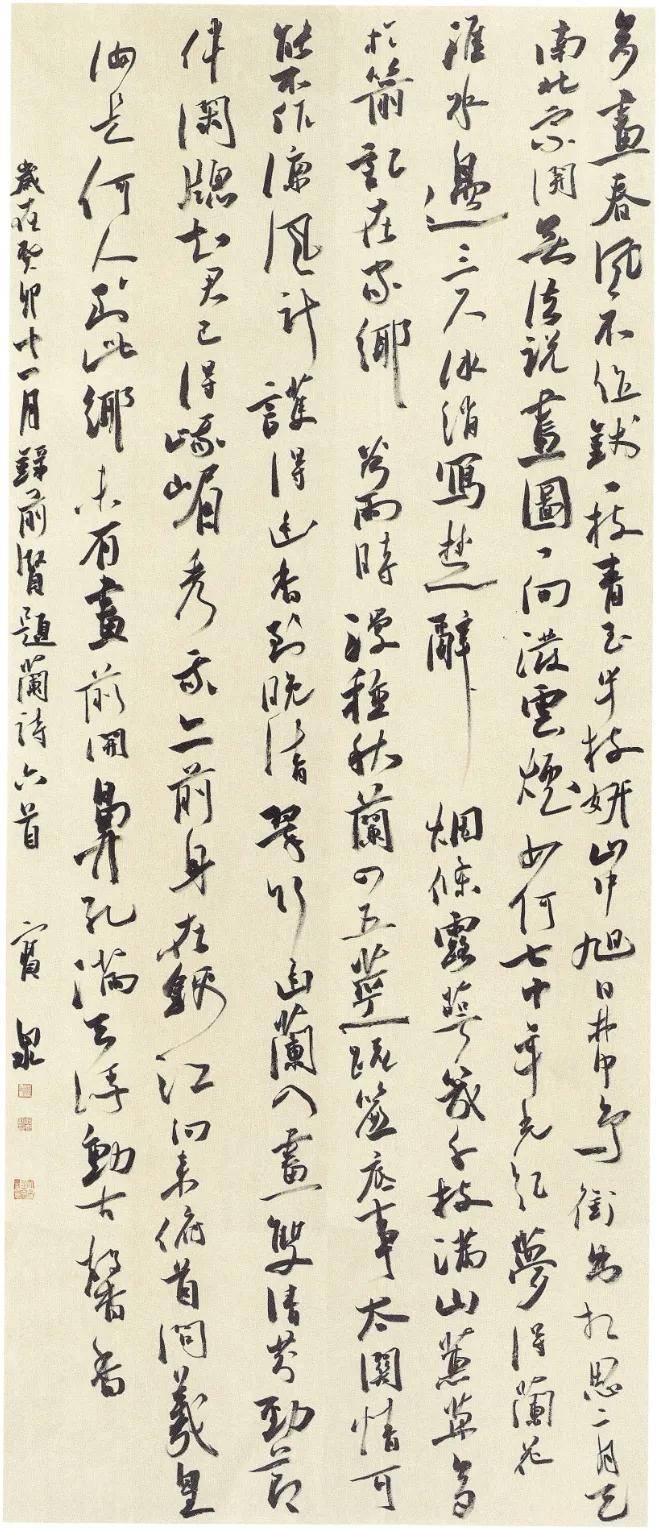 多畫春風不值錢一枝青玉半枝妍山中旭日林中鳥銜出相思二月天
南北宗開無法說畫圖一向潑雲煙如何七十年光紀夢得蘭花
淮水邊三尺冰消寫楚辭烟條露葉幾千枝滿山薰草多
於箭記在家鄉谷雨時漫種秋蘭四五莖疏簾底事太關情可
能不作涼風計護得幽香到晚清翠竹幽蘭入畫雙清芬勁節
伴闌牕知君已得峨嵋秀我亦前身在錦江向來俯首問羲皇
汝是何人到此鄉未有畫前開鼻孔滿天浮動古馨香
歲在癸卯十一月錄前賢題蘭詩六首 寶泉